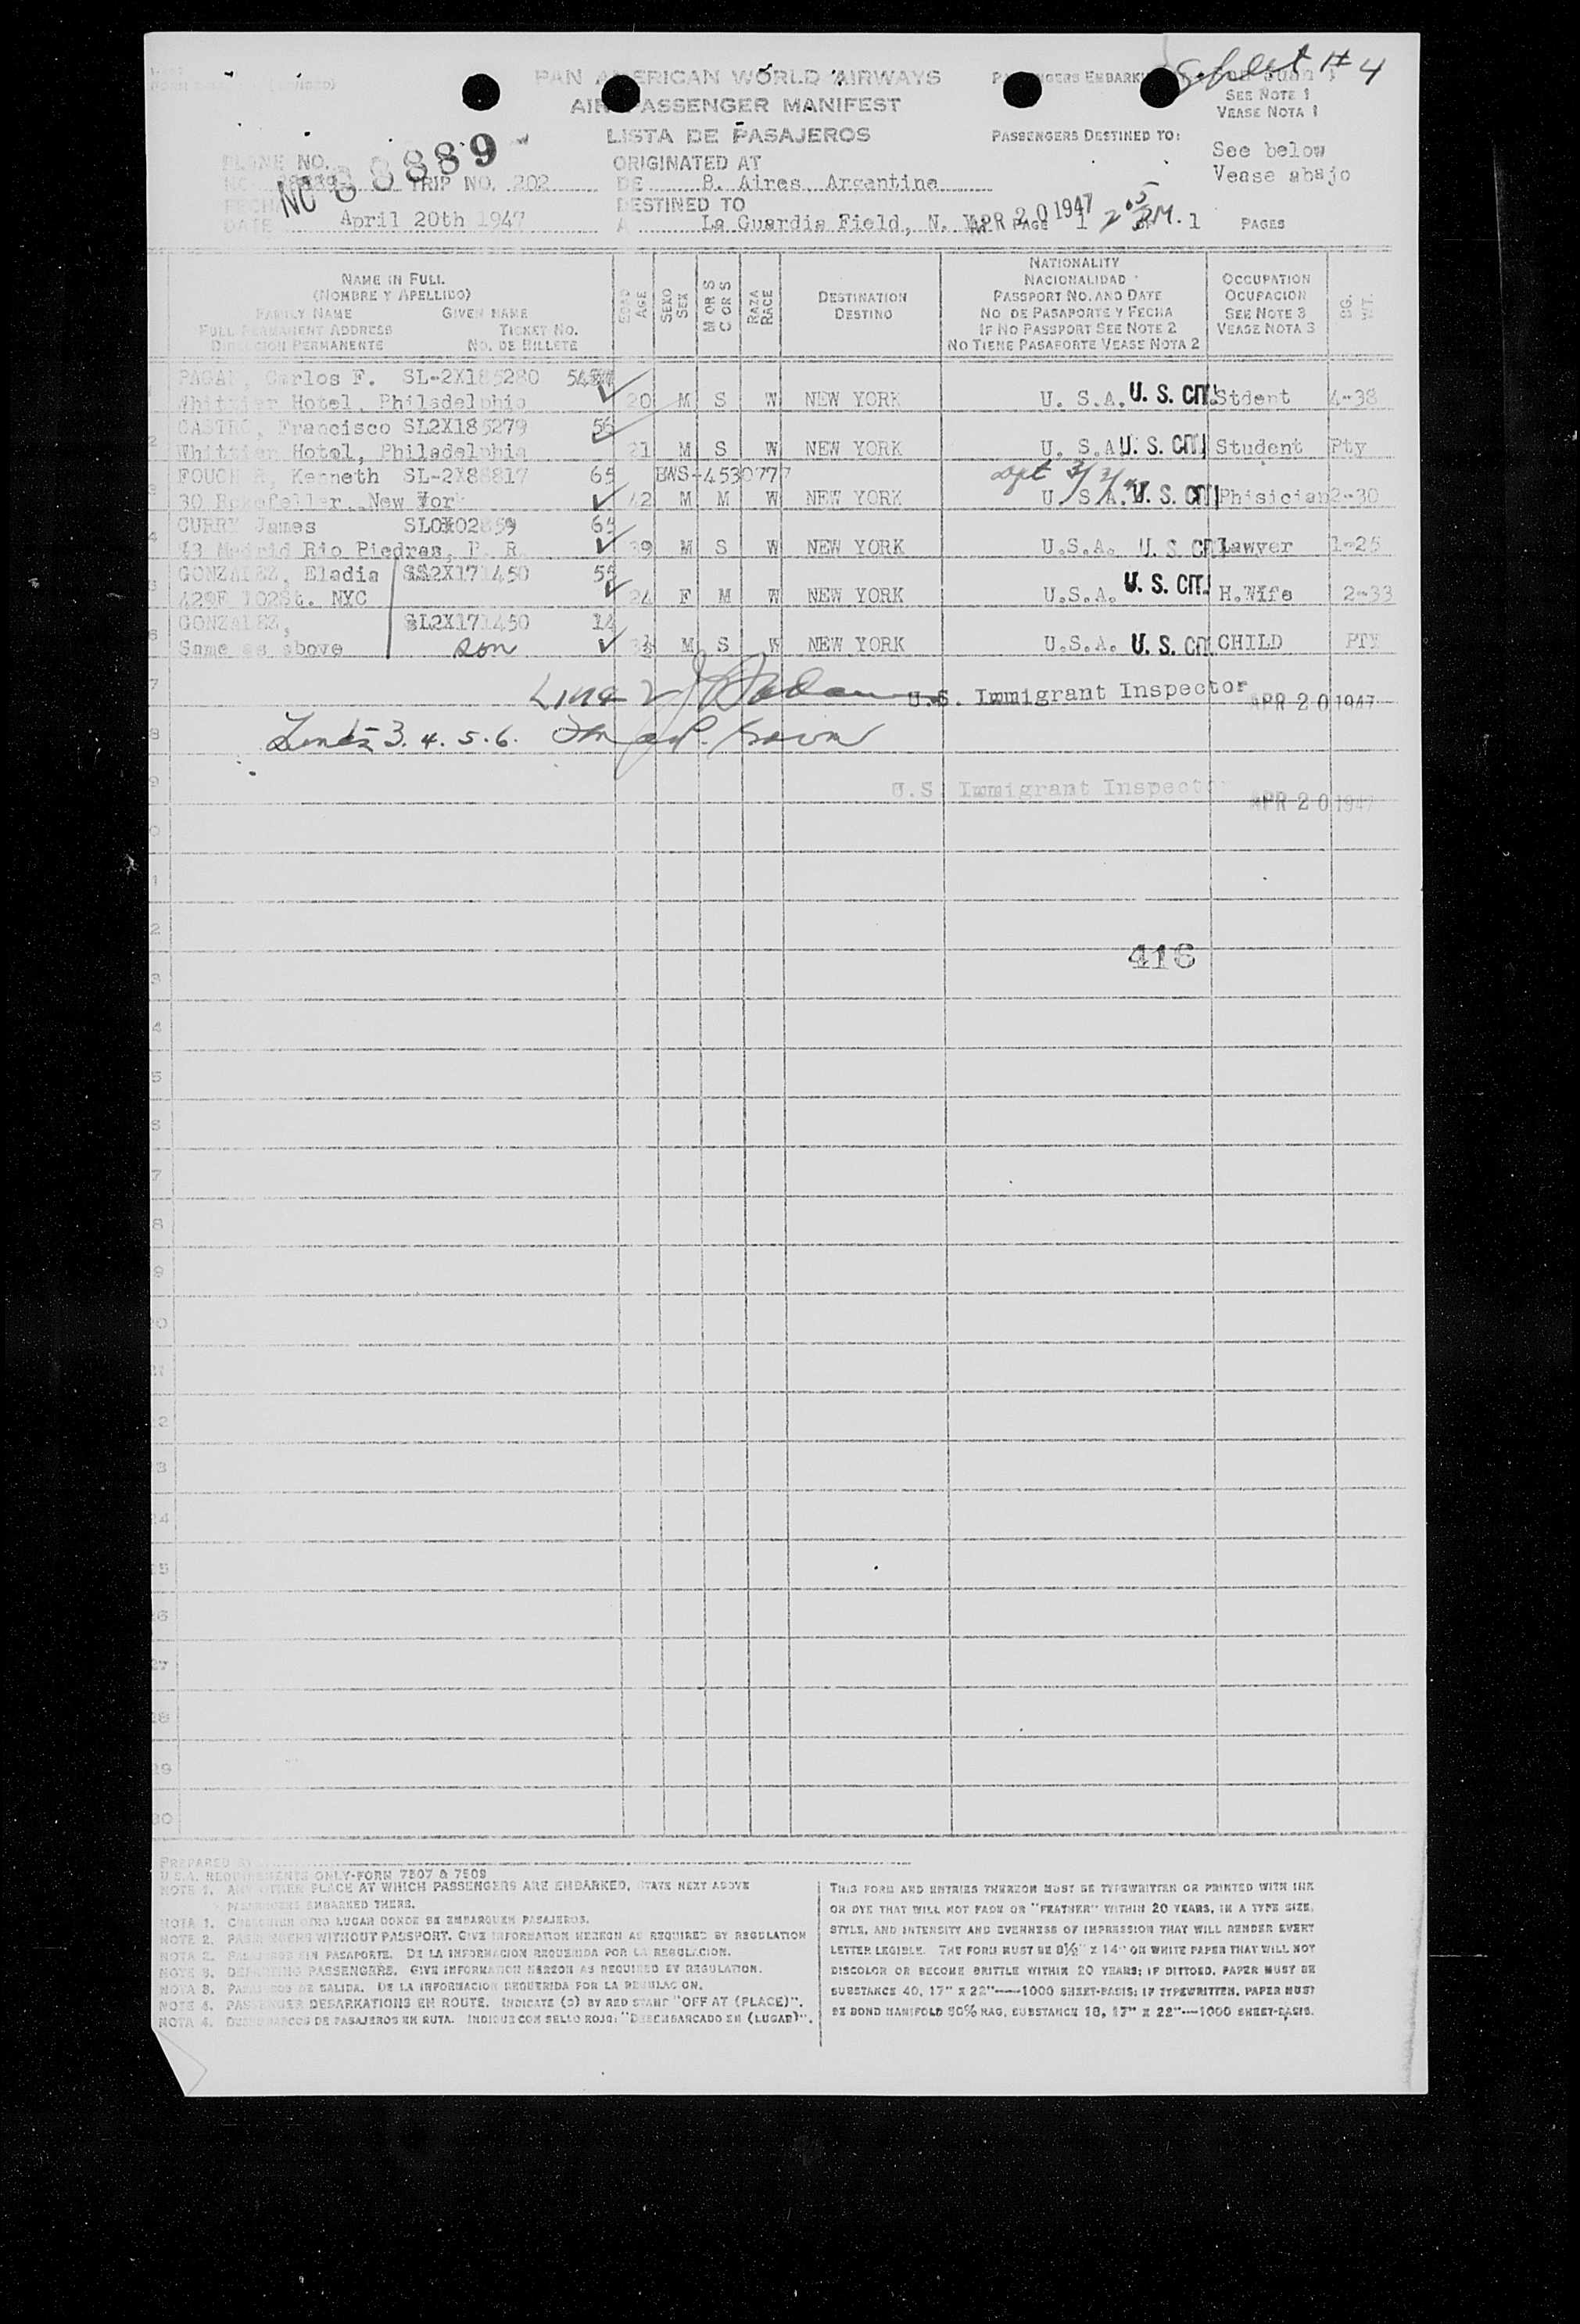 PAN AMERICAN WORLD AIRWAYS
AIR PASSENGER MANIFEST
LISTA DE PASAJEROS
PASSENGERS EMBARK
Juan
# 4
SEE NOTE 1
VEASE NOTA 1
PASSENGERS DESTINED TO:
See below
Vease abajo
PLANE NO.
NC 88889
TRIP NO. 202
ORIGINATED AT
DE B. Aires Argentina
FECHA
DATE April 20th 1947
DESTINED TO
A La Guardia Field, N. Y.
APR 20 1947
PAGE 1 1 PAGES
NAME IN FULL
(NOMBRE Y APELLIDO)
FAMILY NAME GIVEN NAME
FULL PERMANENT ADDRESS TICKET NO.
DIRECCION PERMANENTE NO. DE BILLETE
EDAD AGE
SEXO SEX
M OR S C OR S
RAZA RACE
DESTINATION
DESTINO
NATIONALITY
NACIONALIDAD
PASSPORT NO. AND DATE
NO DE PASAPORTE Y FECHA
IF NO PASSPORT SEE NOTE 2
NO TIENE PASAPORTE VEASE NOTA 2
OCCUPATION
OCUPACION
SEE NOTE 3
VEASE NOTA 3
PAGAN, Carlos F. SL-2X185280
Whittier Hotel, Philadelphia 20 M S W NEW YORK U. S.A. U. S. CIT. Stdent 4-38
2 CASTRO, Francisco SL2X185279 56
Whittier Hotel, Philadelphia 21 M S W NEW YORK U. S.A U. S. CIT. Student Pty
3 FOUCH R, Kenneth SL-2X88817 65 BWS-4530777
30 Rokefeller. New York 42 M M W NEW YORK U. S.A. U. S. CIT Phisician 2-30
4 CURRY James 65
43 Madrid Rio Piedras, P. R. 39 M S W NEW YORK U.S.A. U. S. CIT Lawyer 1-25
5 GONZALEZ, Eladia 2X171450 55
429E 102St. NYC 24 F M W NEW YORK U.S.A. U. S. CIT. H.Wife 2-33
6 GONZALEZ, SL2X171450 14
Same as above son M S W NEW YORK U.S.A. U. S. CIT. CHILD PTY
7 U.S. Immigrant Inspector APR 20 1947
8 3. 4. 5. 6.
9 U.S. Immigrant Inspector APR 20 1947
0
1
2
3
4
5
6
7
8
9
20
21
22
23
24
25
26
27
28
29
30
PREPARED BY
U.S.A. REQUIREMENTS ONLY-FORM 7507 & 7509
NOTE 1. ANY OTHER PLACE AT WHICH PASSENGERS ARE EMBARKED, STATE NEXT ABOVE
PASSENGERS EMBARKED THERE.
NOTA 1. CUALQUIER OTRO LUGAR DONDE SE EMBARQUEN PASAJEROS.
NOTE 2. PASSENGERS WITHOUT PASSPORT. GIVE INFORMATION HEREON AS REQUIRED BY REGULATION
NOTA 2. PASAJEROS SIN PASAPORTE. DE LA INFORMACION REQUERIDA POR LA REGULACION.
NOTE 3. DEPARTING PASSENGERS. GIVE INFORMATION HEREON AS REQUIRED BY REGULATION.
NOTA 3. PASAJEROS DE SALIDA. DE LA INFORMACION REQUERIDA POR LA REGULACION.
NOTE 4. PASSENGER DEBARKATIONS EN ROUTE. INDICATE (D) BY RED STAMP "OFF AT (PLACE)".
NOTA 4. DESEMBARCOS DE PASAJEROS EN RUTA. INDIQUE CON SELLO ROJO: "DESEMBARCADO EN (LUGAR)".
THIS FORM AND ENTRIES THEREON MUST BE TYPEWRITTEN OR PRINTED WITH INK
OR DYE THAT WILL NOT FADE OR "FEATHER" WITHIN 20 YEARS, IN A TYPE SIZE,
STYLE, AND INTENSITY AND EVENNESS OF IMPRESSION THAT WILL RENDER EVERY
LETTER LEGIBLE. THE FORM MUST BE 8½" X 14" ON WHITE PAPER THAT WILL NOT
DISCOLOR OR BECOME BRITTLE WITHIN 20 YEARS; IF DITTOED, PAPER MUST BE
SUBSTANCE 40, 17" X 22"—1000 SHEET-BASIS; IF TYPEWRITTEN, PAPER MUST
BE BOND MANIFOLD 50% RAG, SUBSTANCE 18, 17" X 22"—1000 SHEET-BASIS.